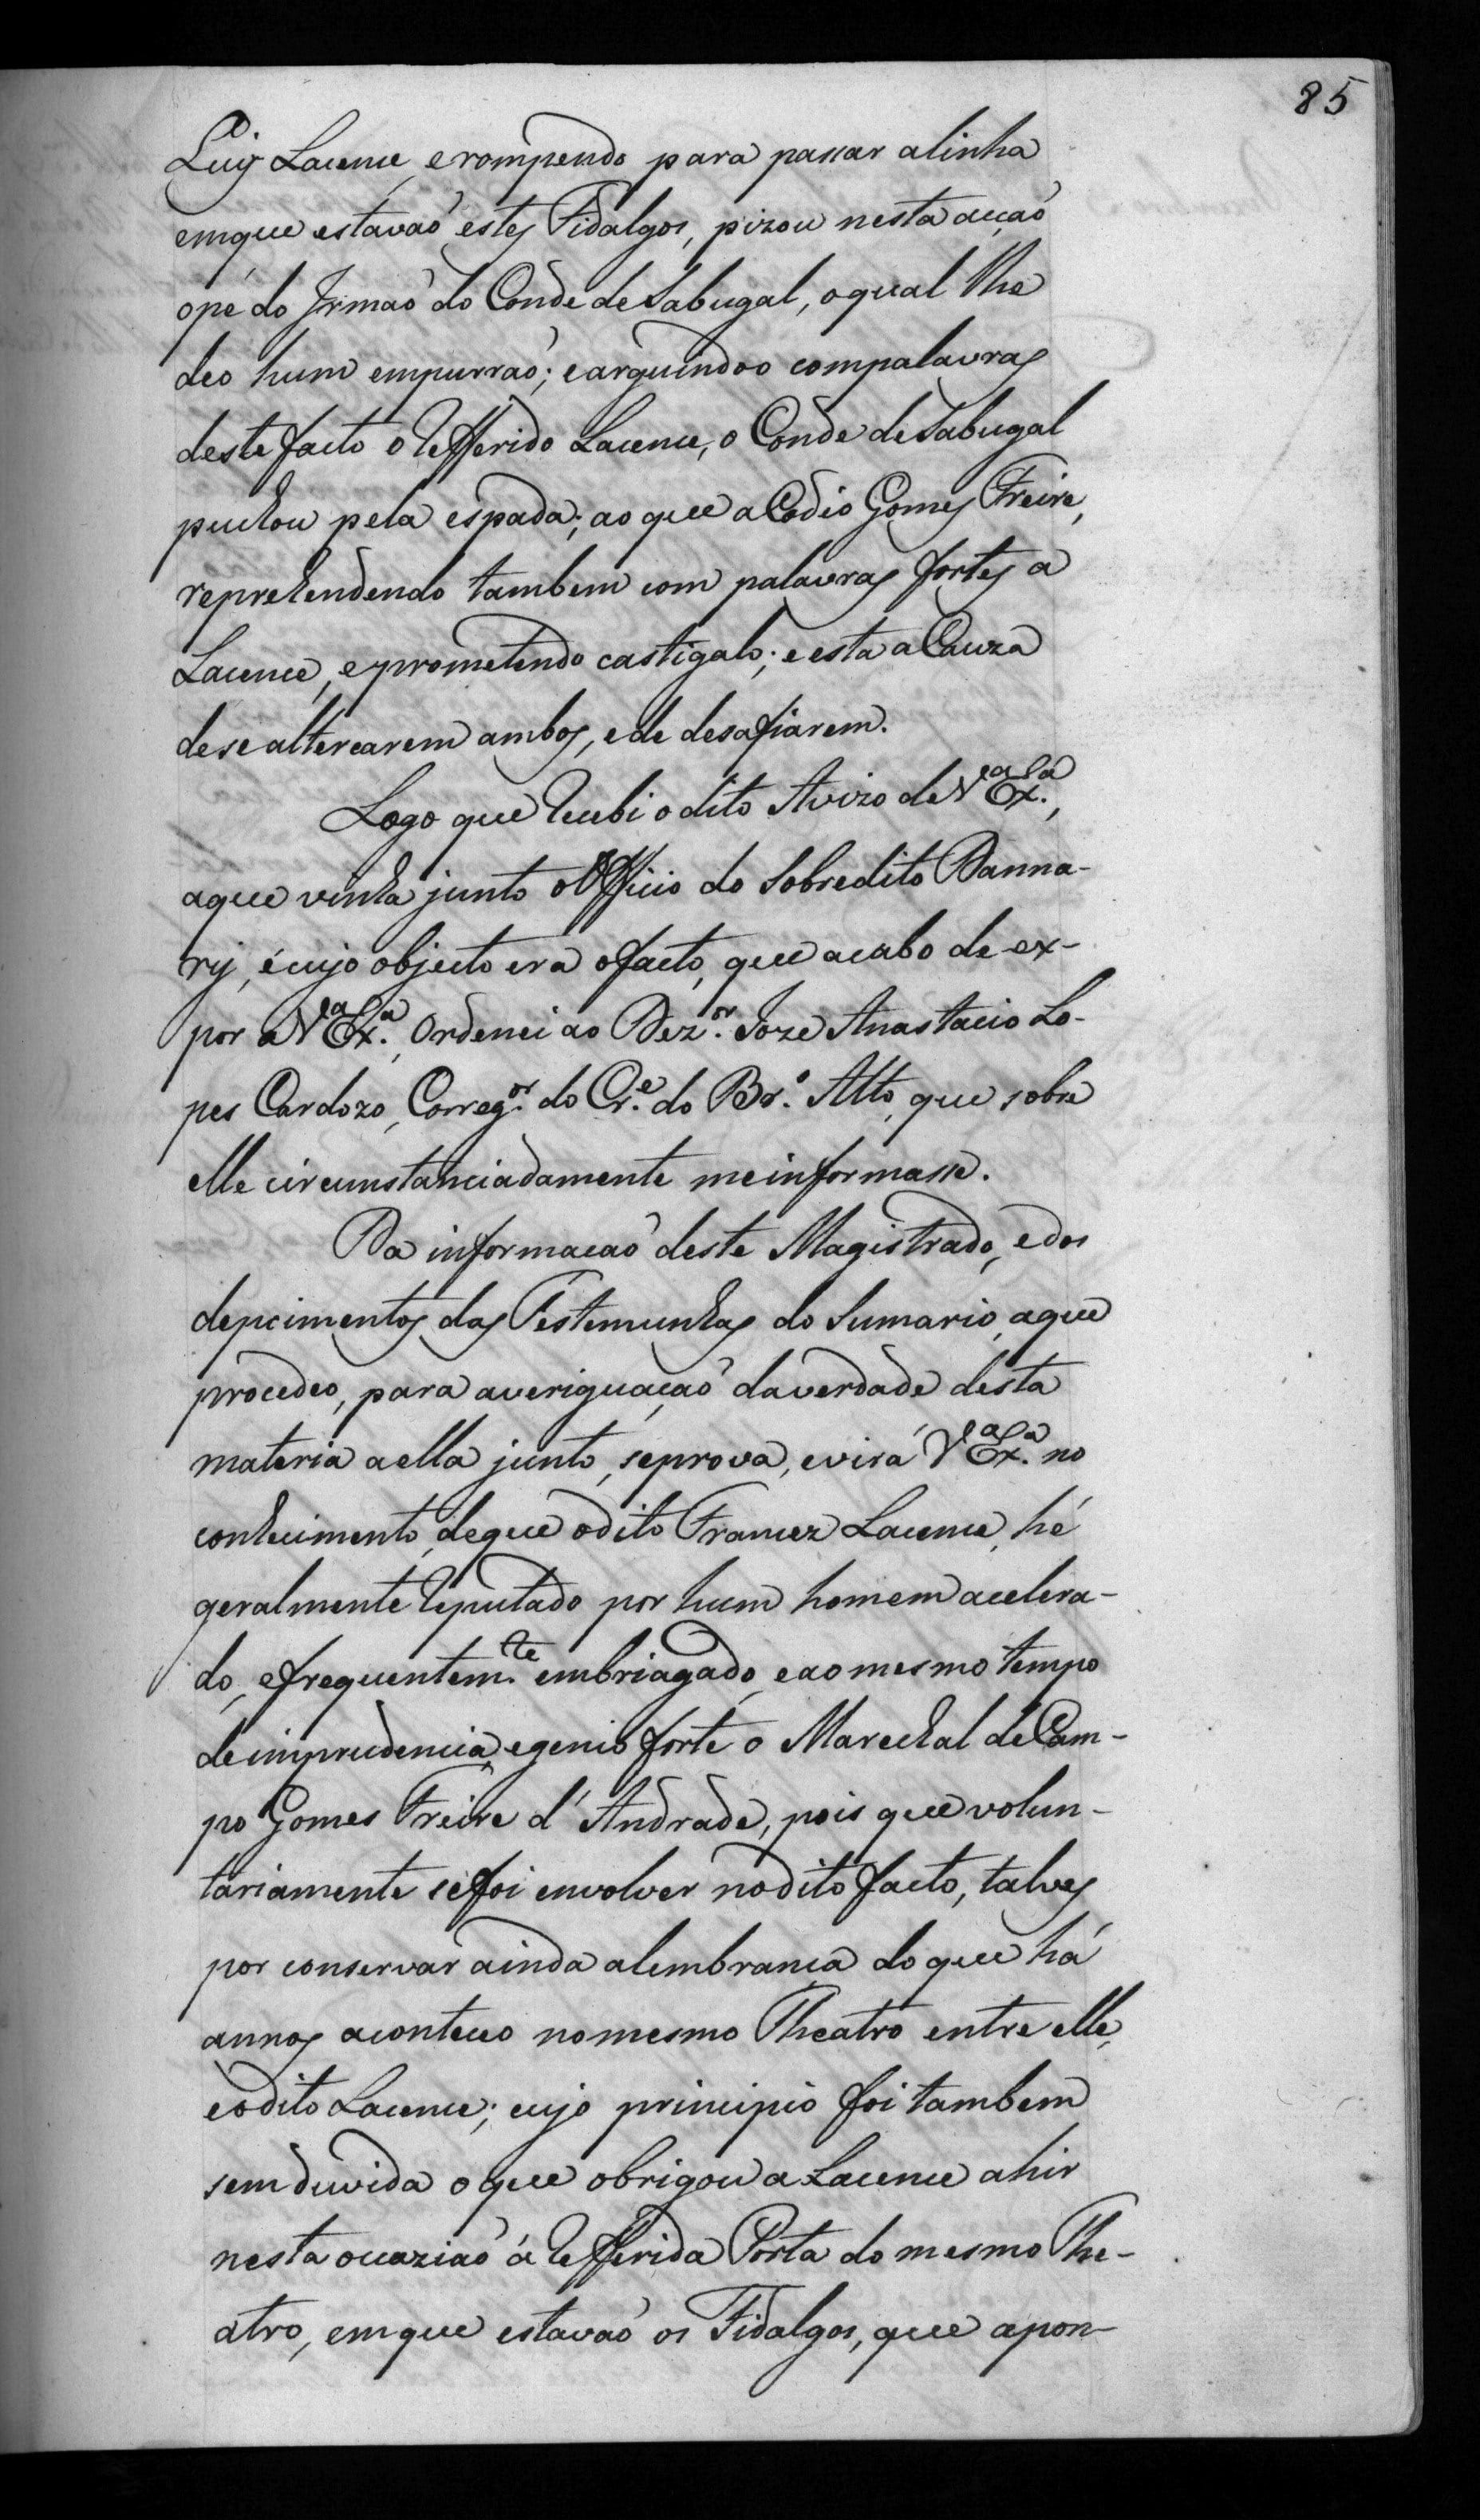 85
Luis Lacence, e rompendo para passar alinha
emque estavaõ estes Fidalgos, pizou nesta acçaõ
opé do Irmaõ do Conde de Sabugal, oqual lhe
deo hum empurraõ; earguindoo compalavras
deste facto o Refferido Lacence, o Conde de Sabugal
puchou pela espada; ao que aCodio Gomes Freire,
reprehendendo tambem com palavras fortes a
Lacence, eprometendo castigalo; e esta a Cauza
dese altercarem ambos, e de desafiarem.
Logo que Recebi o dito Avizo de Vª Exª.,
aque vinha junto oOfficio do Sobredito Banna-
ry, écujo objecto era ofacto, que acabo de ex-
por a Vª Exª., Ordenei ao Dezor. Joze Anastacio Lo-
pes Cardozo, Corregor. do Cre. do Bro. Alto, que sobre
elle circunstanciadamente meinformasse.
Da informacaõ deste Magistrado, e dos
depoimentos das Testemunhas do Sumario, aque
procedeo, para averiguaçaõ daverdade desta
materia aella junto, seprova, evirá Vª Exª. no
conhecimento, deque odito Francez Lacence, hé
geralmente Reputado por hum homem acelera-
do, efrequentemte. embriagado, eao mesmo tempo
deimprudencia, egenio forte o Marechal de Cam-
po Gomes Freire d'Andrade, pois que volun-
tariamente sefoi envolver nodito facto, talves
por conservar ainda alembranca do que há
annos aconteceo nomesmo Theatro entre elle,
eodito Lacence; cujo principio foi tambem
semduvida oque obrigou a Lacence ahir
nesta ocaziaõ á Refferida Porta do mesmo The-
atro, emque estavaõ os Fidalgos, que apon-